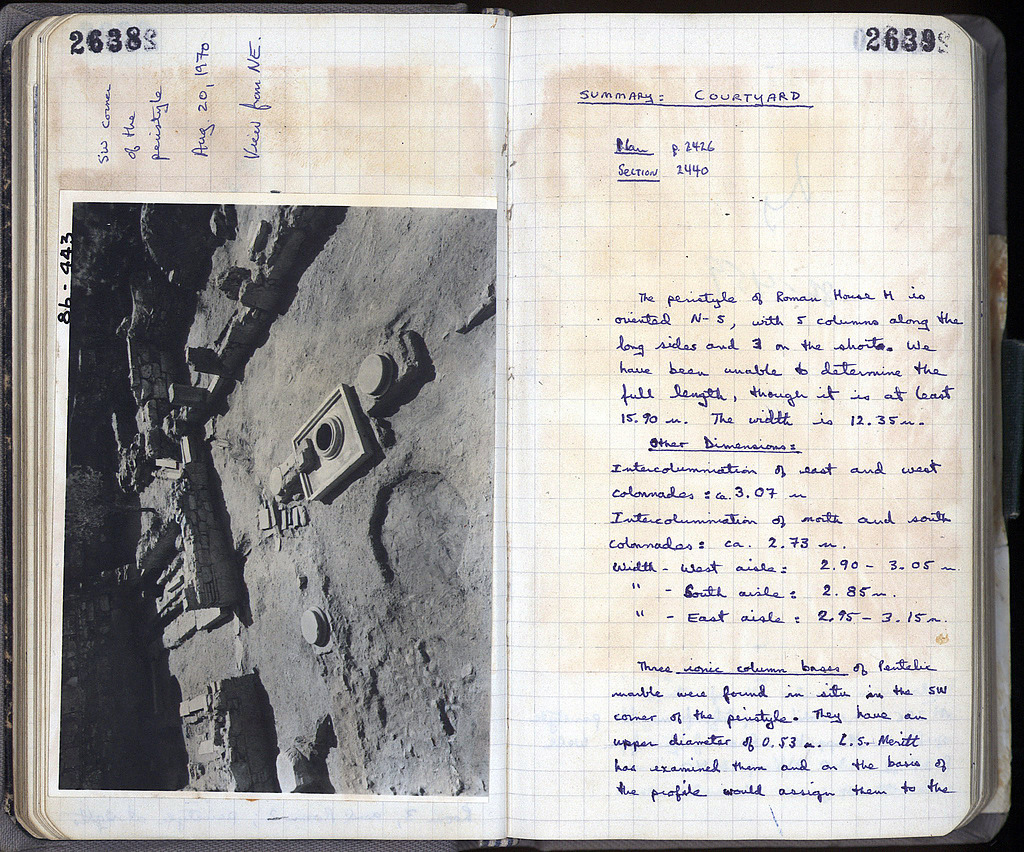 2638
SW corner
of the
peristyle
Aug. 20, 1970
View from NE.
86-443
2639
SUMMARY: COURTYARD
Plan p. 2426
Section 2440
The peristyle of Roman House H is
oriented N-S, with 5 columns along the
long sides and 3 on the shorts. We
have been unable to determine the
full length, though it is at least
15.90 m. The width is 12.35 m.
Other Dimensions:
Intercolumniation of east and west
colonnades: ca. 3.07 m
Intercolumniation of north and south
colonnades: ca. 2.73 m.
Width - West aisle: 2.90 - 3.05 m.
" - South aisle: 2.85 m.
" - East aisle: 2.95 - 3.15 m.
Three ionic column bases of Pentelic
marble were found in situ in the SW
corner of the peristyle. They have an
upper diameter of 0.53 m. L.S. Meritt
has examined them and on the basis of
the profile would assign them to the